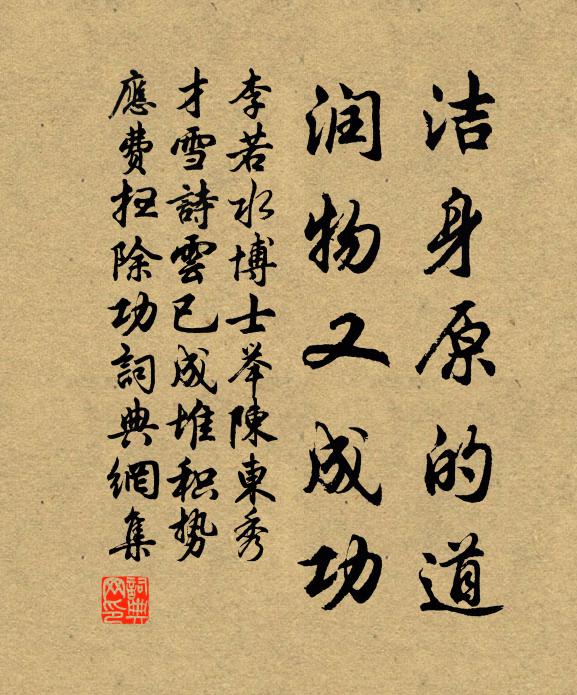 洁身原的道
润物又成功
李若水博士举陳東秀
才雪詩雲已成堆积势
應费扫除功詞典網集
詞典網印